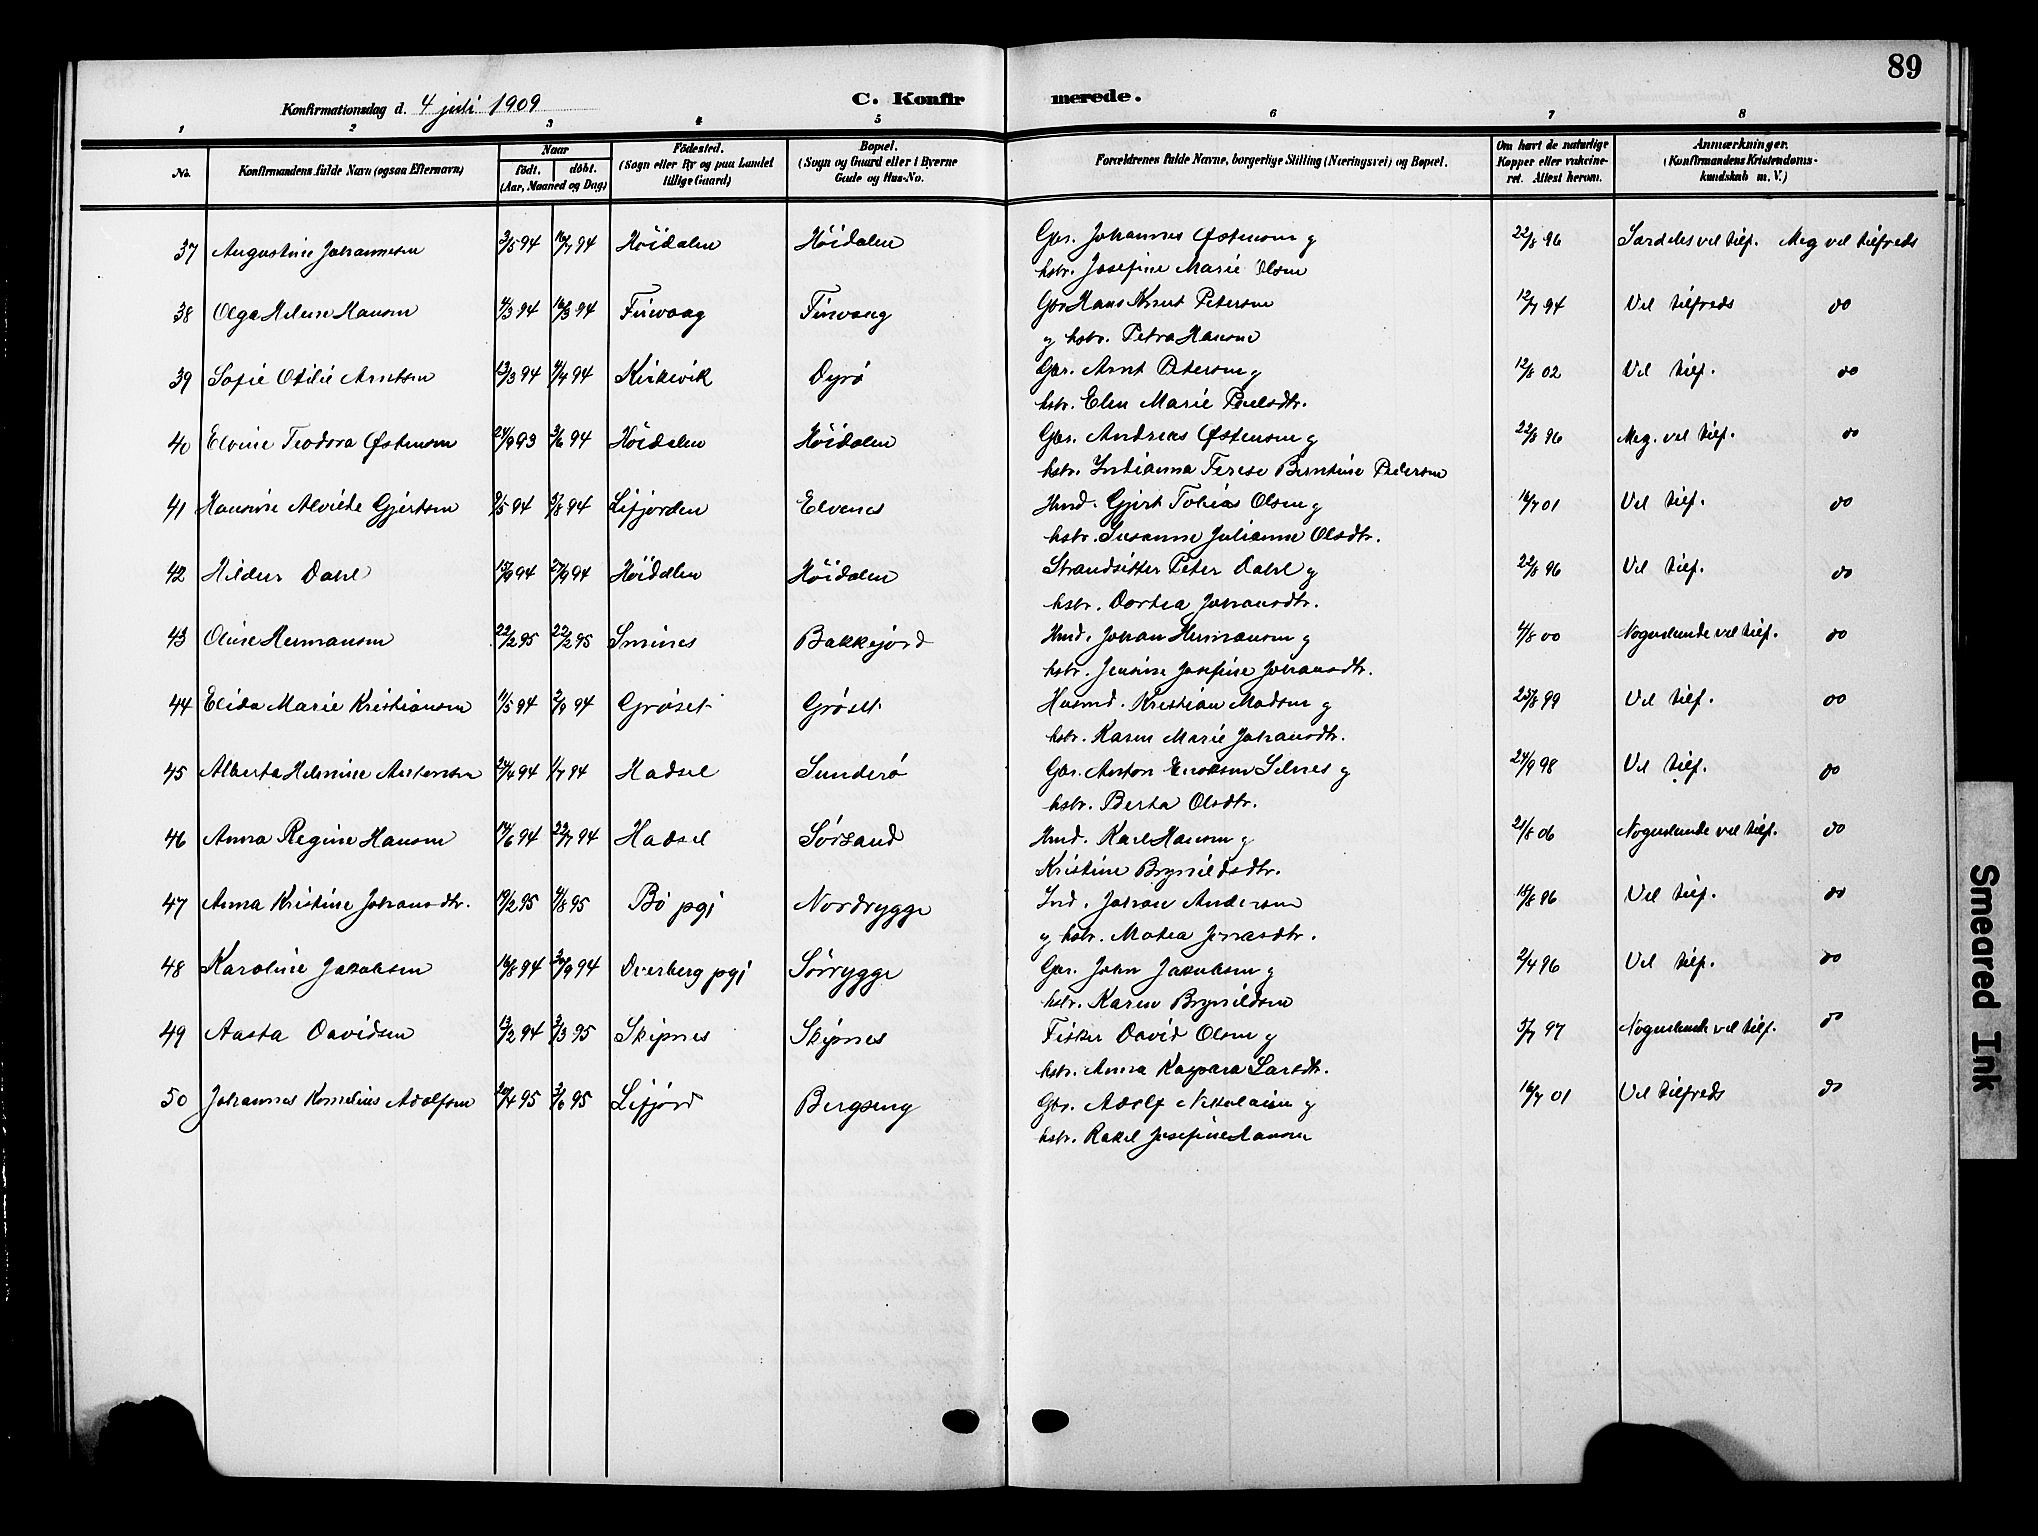 89
Konfirmationsdag d. 4 juli 1909
C. Konfir merede.
1 2 3 4 5 6 7 8
No. Konfirmandens fulde Navn (ogsaa Efternavn) Naar født. døbt. (Aar, Maaned og Dag) Födested. (Sogn eller By og paa Landet tillige Gaard) Bopæl. (Sogn og Gaard eller i Byerne Gade og Hus-No. Forældrenes fulde Navne, borgerlige Stilling (Næringsvei) og Bopæl. Om havt de naturlige Kopper eller vakcineret. Attest herom. Anmærkninger. (Konfirmandens Kristendomskundskab m. V.)
37 Augustine Johannesen 3/5 94 16/7 94 Höidalen Höidalen Gbr. Johannes Østensen g 22/8 96 Særdeles vel tilf. Meg vel tilfreds
hstr. Josefine Marie Olsen
38 Olga Helene Hansen 4/3 94 16/3 94 Finvaag Finvaag Gbr Hans Knut Petersen 12/7 94 Vel tilfreds do
g hstr. Petra Hansen
39 Sofie Otilie Arntsen 13/3 94 4/4 94 Kirkevik Dyrö Gbr. Arnt Petersen g 12/8 02 Vel tilf. do
hstr. Elen Marie Paulsdtr.
40 Elvine Teodora Østensen 24/9 93 3/6 94 Höidalen Höidalen Gbr. Andreas Østensen g 22/8 96 Meg. vel tilf. do
hstr. Indianna Terese Berntine Pedersen
41 Hansine Alvilde Gjertsen 9/5 94 5/8 94 Lifjorden Elvenes Hmd. Gjert Tobias Olsen g 16/7 01 Vel tilf. do
hstr. Susanne Julianne Olsdtr.
42 Hildur Dahl 15/9 94 27/9 94 Höidalen Höidalen Strandsitter Peter Dahl g 22/8 96 Vel tilf. do
hstr. Dortea Johansdtr.
43 Oline Hermansen 22/2 95 22/2 95 Smines Bakkejord Hmd. Johan Hermansen g 4/8 00 Nogenlunde vel tilf. do
hstr. Jensine Josefine Johansdtr.
44 Elida Marie Kristiansen 11/5 94 2/9 94 Gröset Gröset Husmd. Kristian Madsen g 25/8 99 Vel tilf. do
hstr. Karen Marie Johansdtr.
45 Alberta Helmine Antonsen 24/4 94 1/7 94 Hadsel Sunderö Gbr. Anton Eriksen Selnes g 24/9 98 Vel tilf. do
hstr. Berta Olsdtr.
46 Anna Regine Hansen 14/6 94 22/7 94 Hadsel Sörsand Hmd. Karl Hansen g 21/8 06 Nogenlunde vel tilf. do
Kristine Brynildsdtr.
47 Anna Kristine Johansdtr. 19/2 95 4/8 95 Bö pgj Nordrygge Ind. Johan Andersen 18/8 96 Vel tilf. do
g hstr. Matea Jonasdtr.
48 Karoline Jakobsen 16/8 94 30/9 94 Dverberg pgj Sörrygge Gbr. John Jakobsen g 2/4 96 Vel tilf. do
hstr. Karen Brynildsen
49 Aasta Davidsen 13/2 94 3/3 95 Skipnes Skipnes Fisker David Olsen g 5/7 97 Nogenlunde vel tilf. do
hstr. Anna Kaspara Larsdtr.
50 Johannes Kornelius Adolfsen 20/4 95 3/6 95 Lifjord Bergseng Gbr. Adolf Nikolaisen g 16/7 01 Vel tilfreds do
hstr. Rakel Josefine Hansen
Smeared Ink